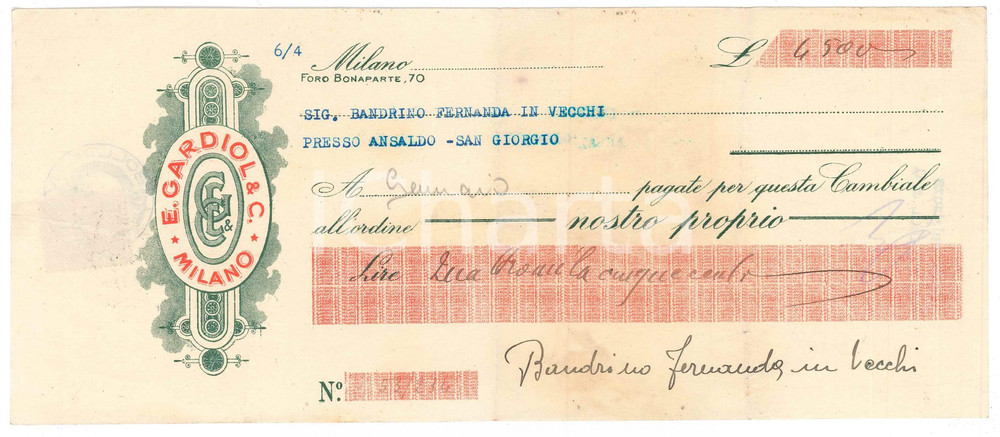 6/4
Milano
FORO BONAPARTE, 70
£ 4500
SIG. BANDRINO FERNANDA IN VECCHI
PRESSO ANSALDO -SAN GIORGIO
E. GARDIOL & C.
MILANO
A Gennaio pagate per questa Cambiale
all'ordine nostro proprio
Lire
Bandrino Fernanda in Vecchi
N.º